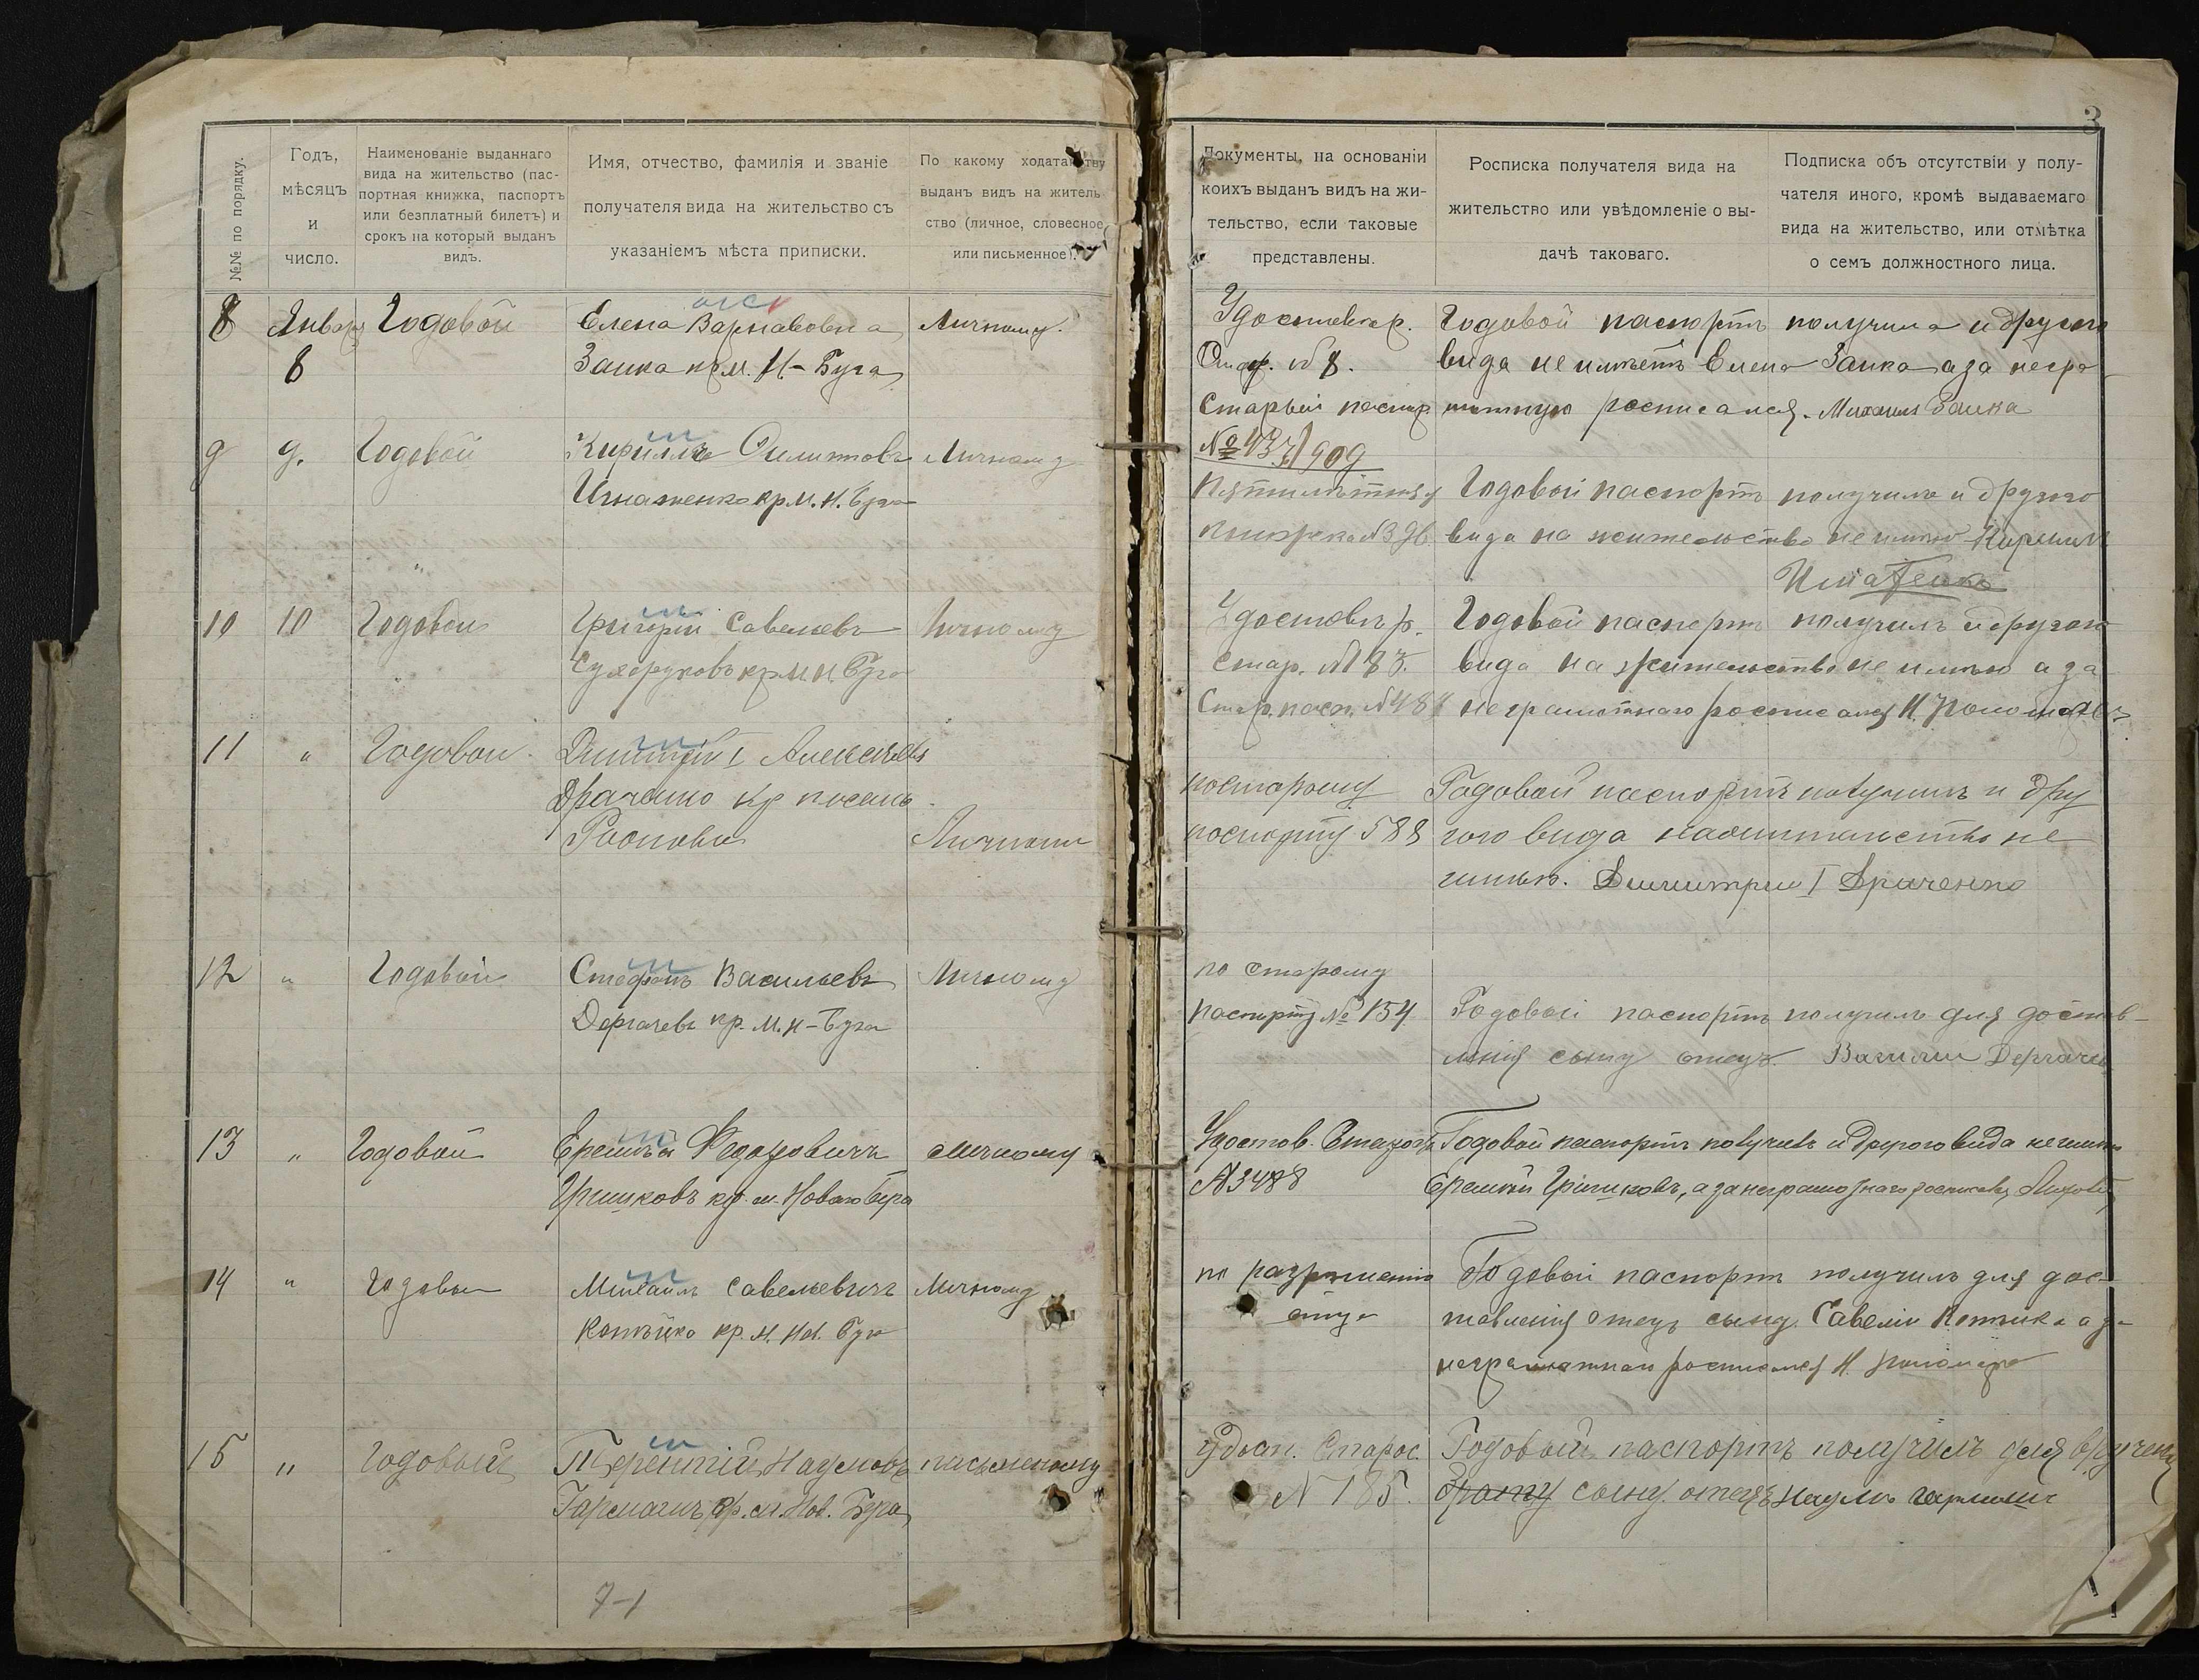 3
№№ по порядку.
Годъ,
мѣсяцъ
и
число.
Наименованіе выданнаго
вида на жительство (пас-
портная книжка, паспортъ
или безплатный билетъ) и
срокъ на который выданъ
видъ.
Имя, отчество, фамилія и званіе
получателя вида на жительство съ
указаніемъ мѣста приписки.
По какому ходатайству
выданъ видъ на житель-
ство (личное, словесное,
или письменное).
Документы, на основаніи
коихъ выданъ видъ на жи-
тельство, если таковые
представлены.
Росписка получателя вида на
жительство или увѣдомленіе о вы-
дачѣ таковаго.
Подписка объ отсутствіи у полу-
чателя иного, кромѣ выдаваемаго
вида на жительство, или отмѣтка
о семъ должностного лица.
8 Январ Годовой Елена Варнавовна Личному.
8 Заика кр. м. Н-Буга
Удостовер. Годовой паспортъ получила и другого
Стар. № 8. вида не имѣетъ Елена Заика а за негра-
Старый паспор мотную росписался. Михаил Заика
№ 437/909
9 9. Годовой Кириллъ Филиповъ Личному
Игнатенко кр. м. Н. Буга
Пятилѣтняя Годовой паспортъ получилъ и другого
книжка № 396. вида на жительство не имѣю Кирилъ
Игнатенко
10 10 Годовой Григорій Савельевъ Личному
Сухоруковъ кр. м. Н. Буга
Удостовѣр. Годовой паспортъ получилъ и другого
Стар. № 183. вида на жительство не имѣю а за
Стар. пасп. № 488 неграмотнаго росписался Н.
11 " Годовой Дмитрій I Алексѣевъ
Драченко кр посел.
Личному
по старому Годовой паспортъ получилъ и дру
паспорту 588 гого вида на не
имѣю. Димитрии I Драченко
12 " Годовой Стефанъ Васильевъ Личному
Дергачевъ кр. м. Н-Буга
по старому
паспорту № 154 Годовой паспортъ получилъ для достав-
ленія сыну отецъ. Василий Дергачев
13 " Годовой Еремѣй Федоровичъ личному
Гришковъ кр. м. Новаго Буга
Удостов. Старосты Годовой паспортъ получилъ и другого вида не имѣю
№ 3488 Еремѣй Гришковъ, а за неграмотнаго росписался
14 " Годовый Михаилъ Савельевичъ Личному
Котѣйко кр. м. Нов. Буга
по разрѣшенію Годовой паспортъ получилъ для дос-
отца тавленія отецъ сыну. Савелій Котѣйко а за
неграмотнаго росписался Н.
15 " Годовый Терентій Наумовъ письменному
Гармашъ кр. м. Нов. Буга
Удост. Старос. Годовый паспортъ получилъ для вручения
№ 185. брату сыну отецъ Наумъ Гармашъ
7-1